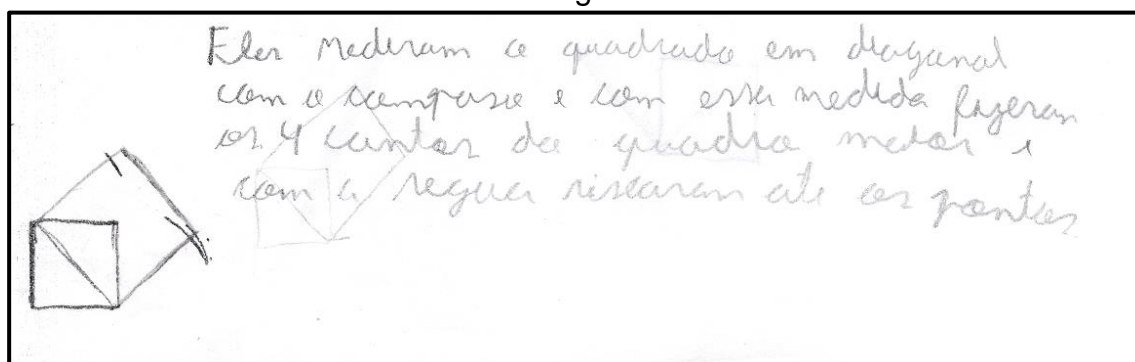 Eles mediram o quadrado em diagonal
com o compaso e com essa medida fizeram
os 4 cantos do quadro maior e
com a regua riscaram até os pontos